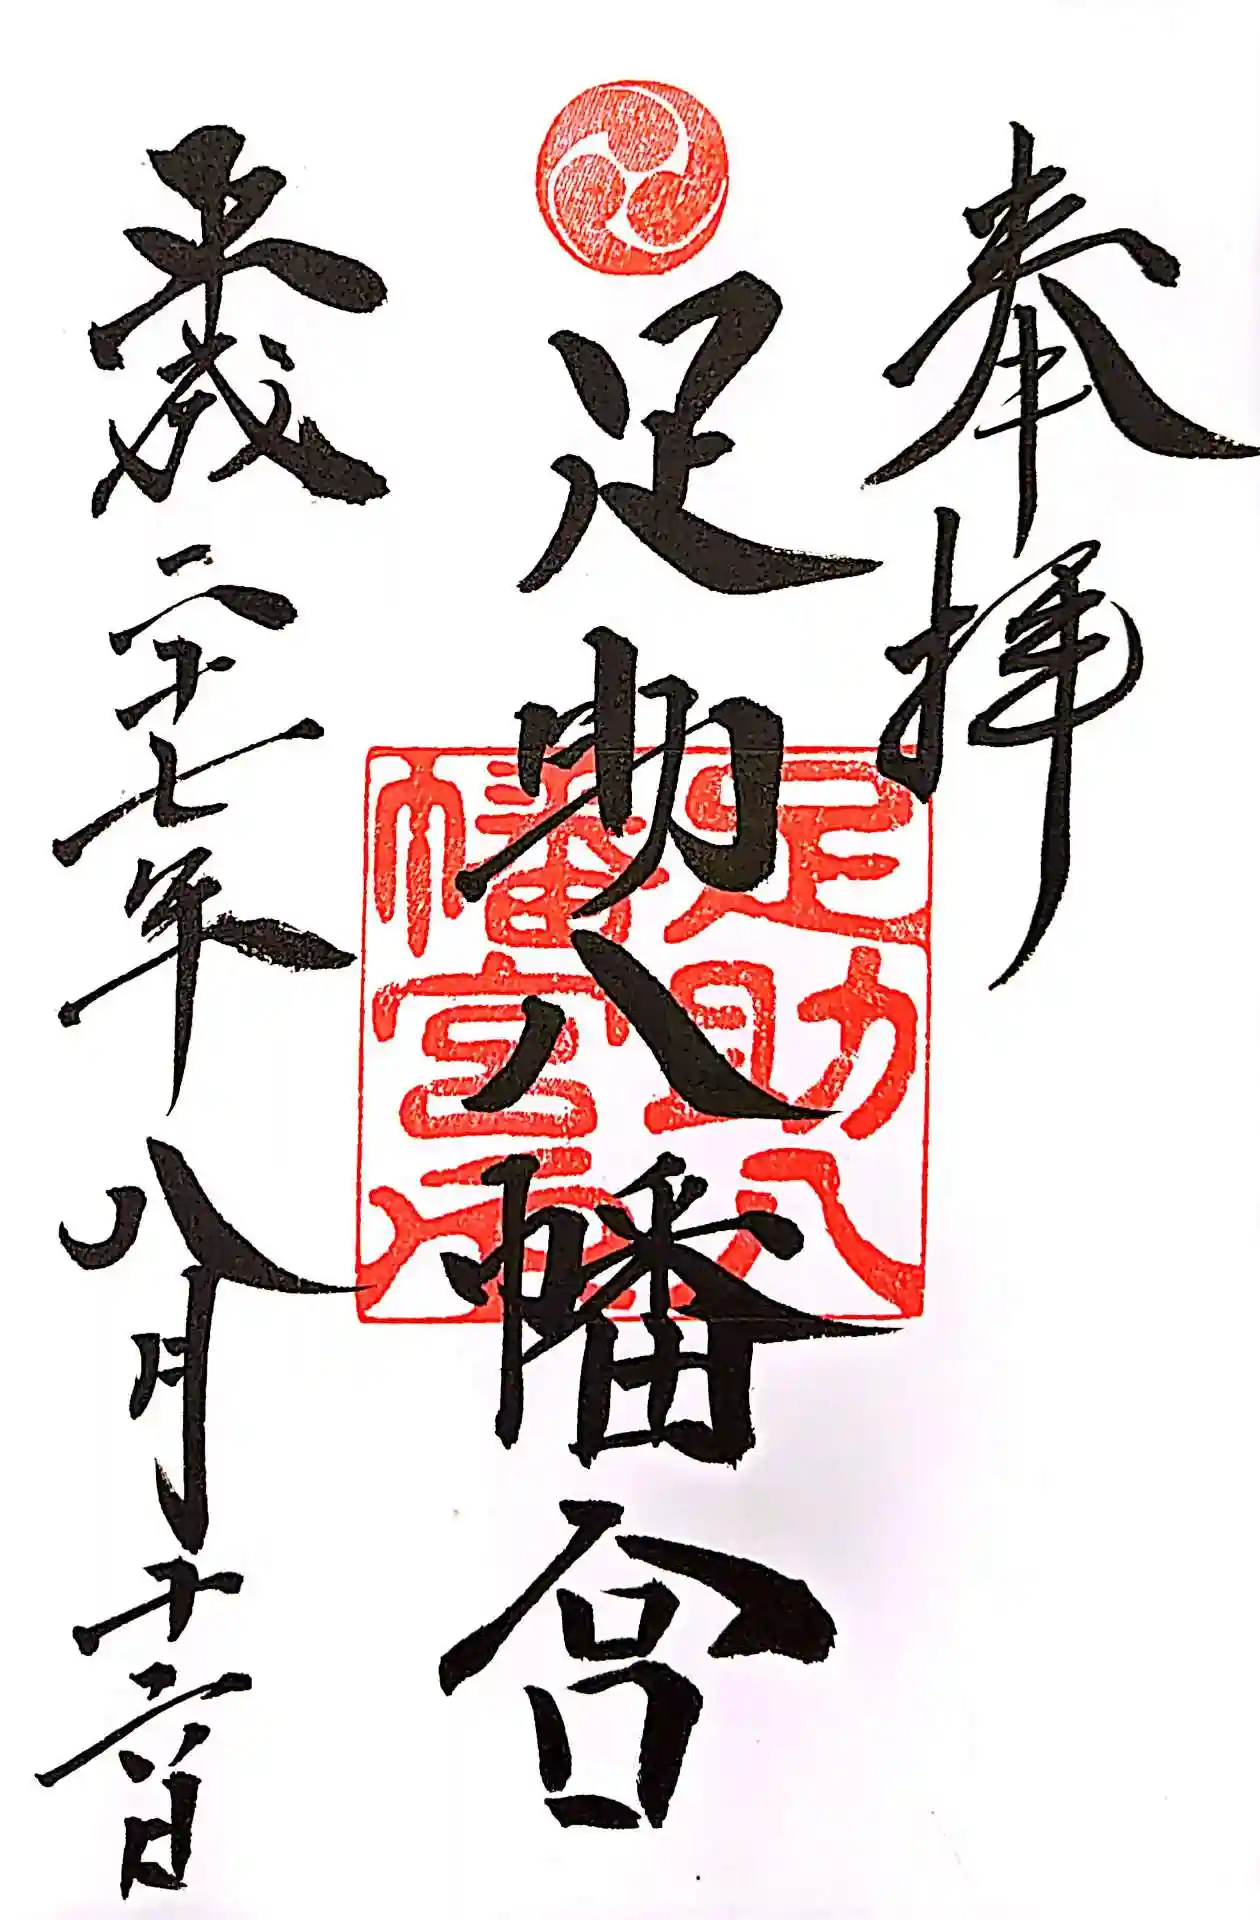 奉拝
足助八幡宮
平成二十七年八月十六日
足助八
幡宮